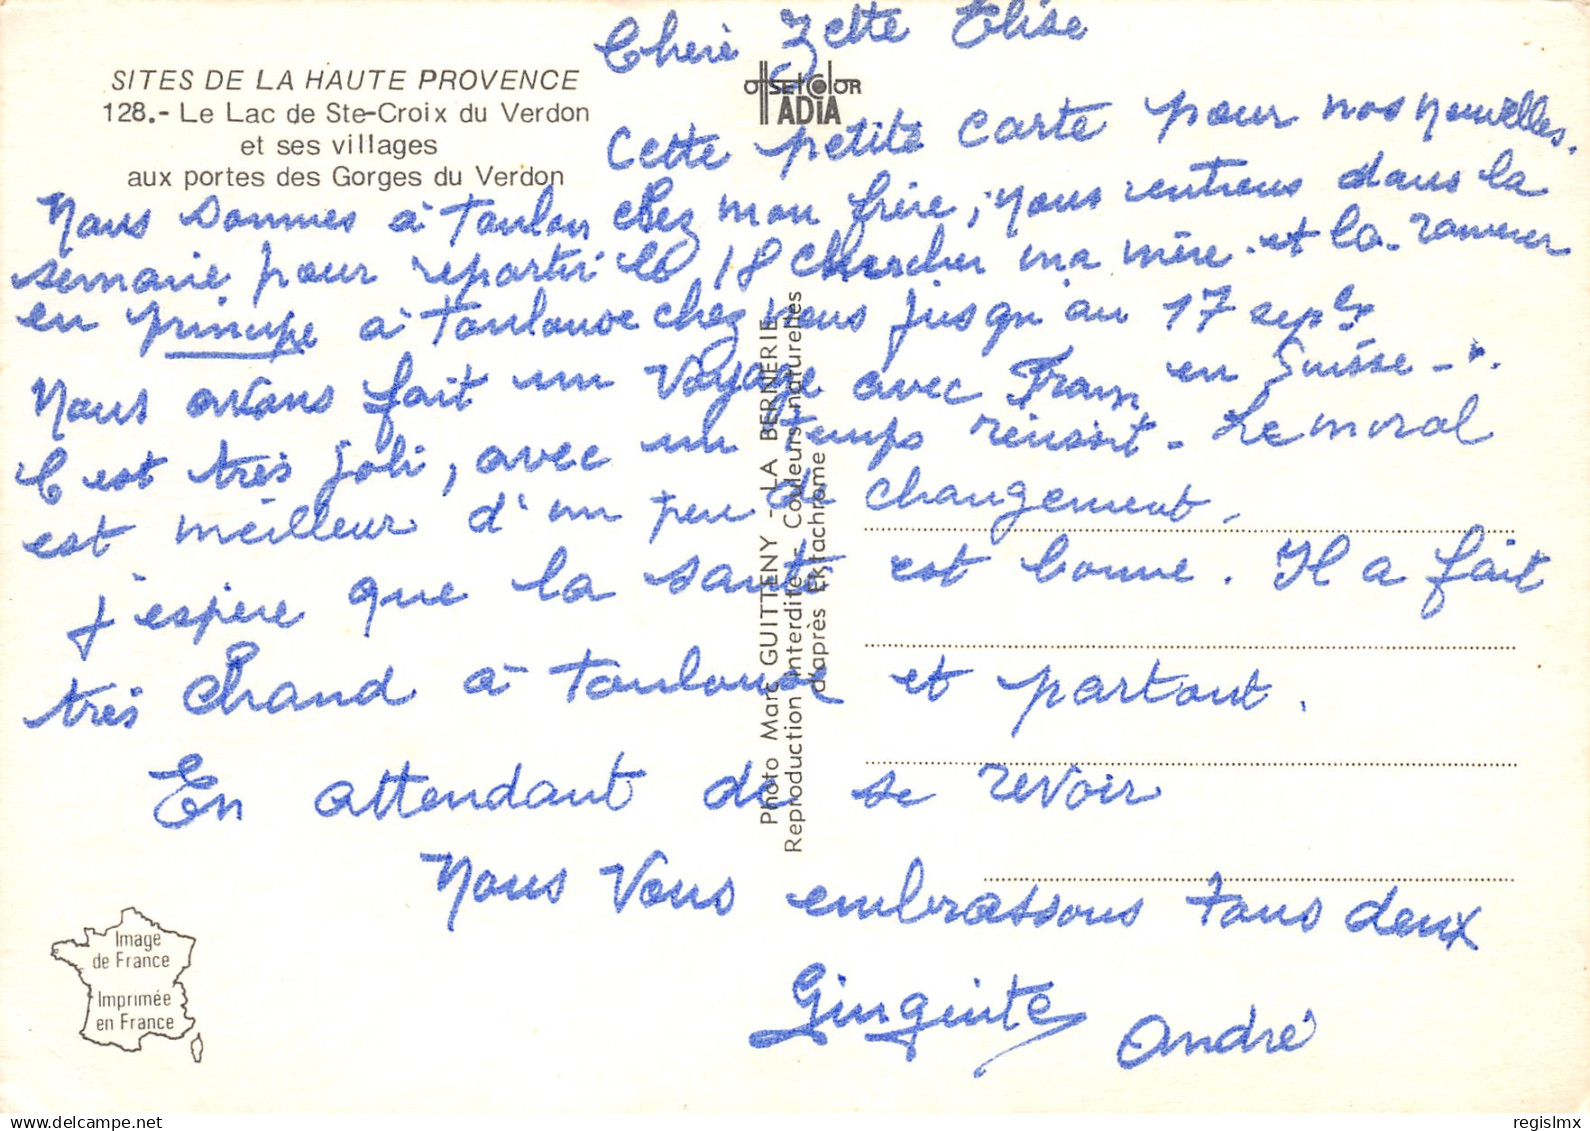 SITES DE LA HAUTE PROVENCE
128.- Le Lac de Ste-Croix du Verdon
et ses villages
aux portes des Gorges du Verdon
OffSEtColOR
ADIA
Cheré Zette Elise
Cette petite carte pour nos nouvelles.
Nous sommes à Toulon chez mon frère, nous rentrons dans la
semaine pour repartir le 18 chercher ma mère et la ramener
en principe à Toulouse chez nous jusqu'au 17 sepbr
Nous avons fait un voyage avec Fram en Suisse -.
C'est très joli, avec un temps réussit - Le moral
est meilleur d'un peu de changement.
j'espère que la santé est bonne. Il a fait
très chaud à Toulouse et partout.
En attendant de se revoir
Nous vous embrassons tous deux
André
Photo Marc GUITTENY - LA BERNERIE
Reproduction interdite - Couleurs naturelles
d'après EKTachrome
Image
de France
Imprimée
en France
regislmx